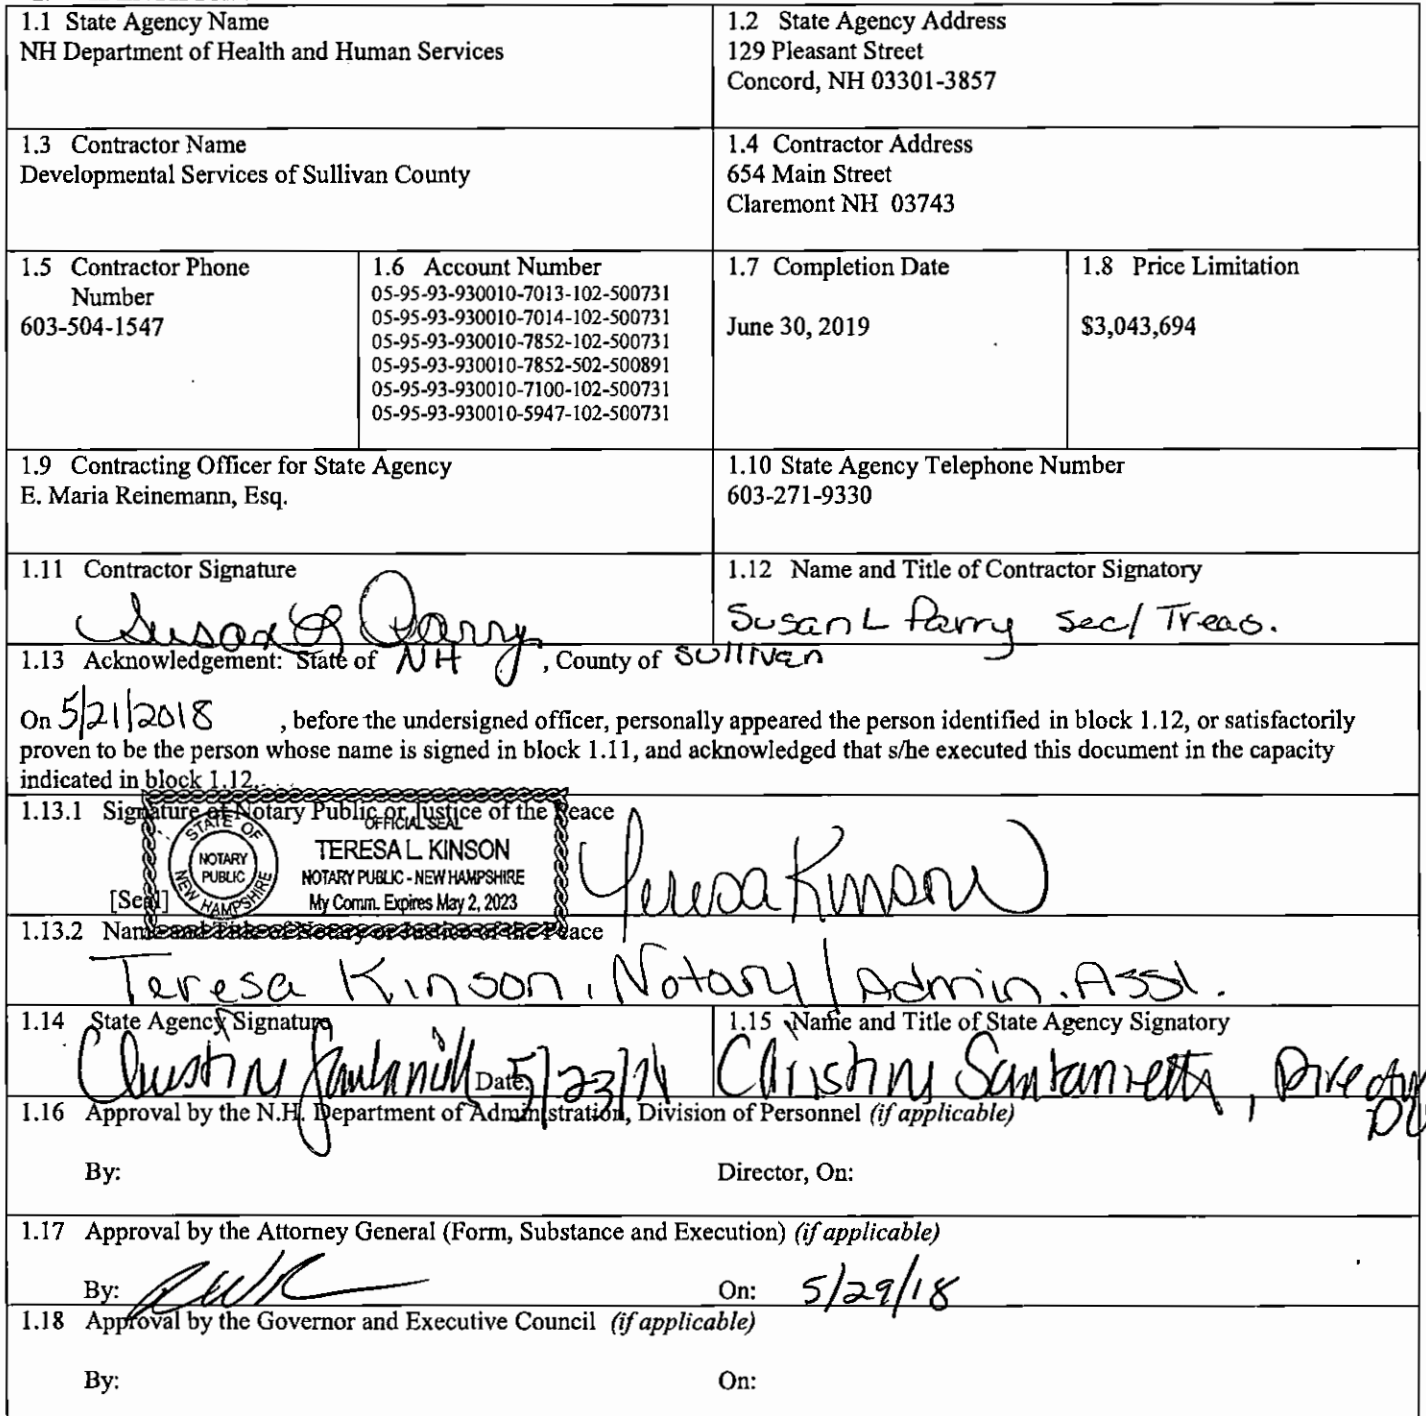 1.1 State Agency Name
NH Department of Health and Human Services
1.2 State Agency Address
129 Pleasant Street
Concord, NH 03301-3857
1.3 Contractor Name
Developmental Services of Sullivan County
1.4 Contractor Address
654 Main Street
Claremont NH 03743
1.5 Contractor Phone
Number
603-504-1547
1.6 Account Number
05-95-93-930010-7013-102-500731
05-95-93-930010-7014-102-500731
05-95-93-930010-7852-102-500731
05-95-93-930010-7852-502-500891
05-95-93-930010-7100-102-500731
05-95-93-930010-5947-102-500731
1.7 Completion Date
June 30, 2019
1.8 Price Limitation
$3,043,694
1.9 Contracting Officer for State Agency
E. Maria Reinemann, Esq.
1.10 State Agency Telephone Number
603-271-9330
1.11 Contractor Signature
Susan L Parry
1.12 Name and Title of Contractor Signatory
Susan L Parry Sec/ Treas.
1.13 Acknowledgement: State of NH , County of Sullivan
On 5/21/2018 , before the undersigned officer, personally appeared the person identified in block 1.12, or satisfactorily
proven to be the person whose name is signed in block 1.11, and acknowledged that s/he executed this document in the capacity
indicated in block 1.12.
1.13.1 Signature of Notary Public or Justice of the Peace
OFFICIAL SEAL
STATE OF NEW HAMPSHIRE
NOTARY PUBLIC
TERESA L. KINSON
NOTARY PUBLIC - NEW HAMPSHIRE
My Comm. Expires May 2, 2023
[Seal]
Teresa Kinson
1.13.2 Name and Title of Notary or Justice of the Peace
Teresa Kinson, Notary / Admin. Asst.
1.14 State Agency Signature
Date: 5/23/18
1.15 Name and Title of State Agency Signatory
Christine Santaniello, Director
1.16 Approval by the N.H. Department of Administration, Division of Personnel (if applicable)
By:
Director, On:
1.17 Approval by the Attorney General (Form, Substance and Execution) (if applicable)
By:
On: 5/29/18
1.18 Approval by the Governor and Executive Council (if applicable)
By:
On: